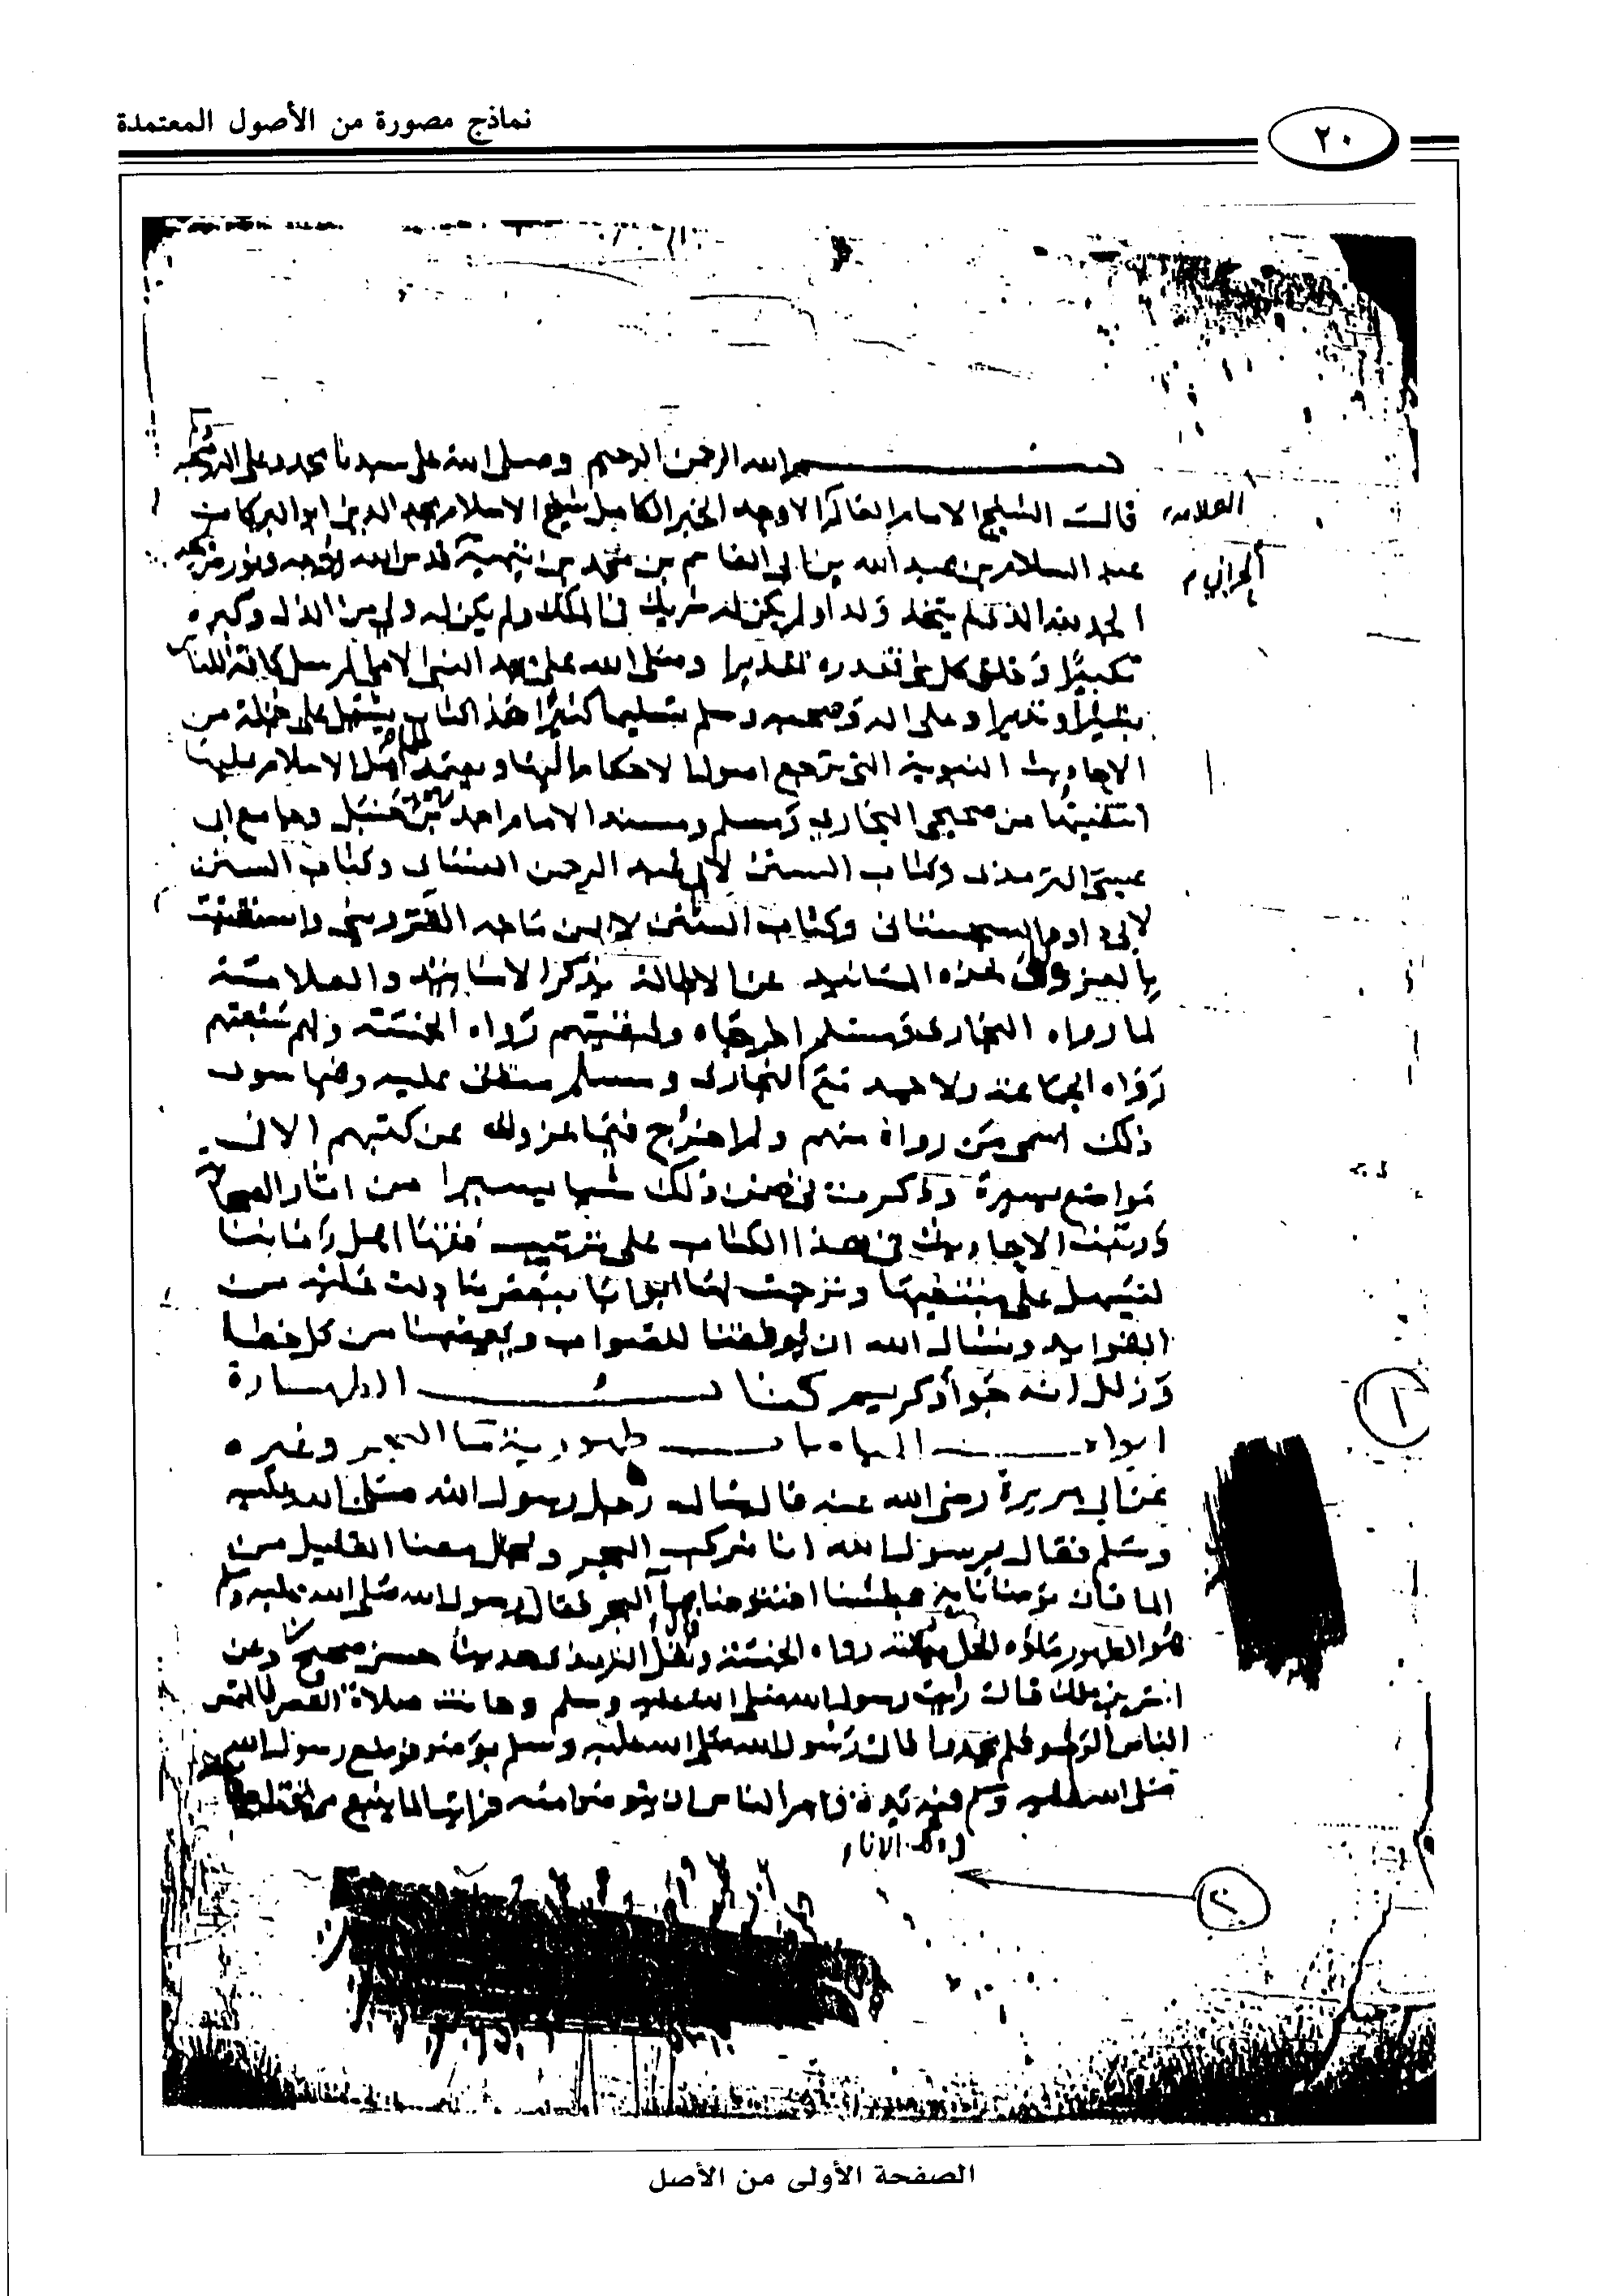 نماذج مصورة من الأصول المعتمدة
٢٠
بسم الله الرحمن الرحيم وصلى الله على سيدنا محمد وعلى اله وصحبه
قال الشيخ الامام العالم الاوحد الحبر الكامل شيخ الاسلام مجد الدين ابو البركات
العلامه
عبد السلام بن عبد الله بن ابى القاسم بن محمد بن تيمية قدس الله روحه ونور ضريحه
الحراني
الحمد لله الذى لم يتخذ ولدا ولم يكن له شريك فى الملك ولم يكن له ولي من الذل وكبره
تكبيرًا وخلق كل شى فقدره تقديرا وصلى الله على محمد النبي الامي المرسل كافة للناس
بشيرا ونذيرا وعلى اله وصحبه وسلم تسليما كثيرًا هذا كتاب يشتمل على جملة من
الاحاديث النبوية التى ترجع اصول الاحكام اليها ويعتمد اهل الاسلام عليها
انتقيتها من صحيحي البخاري ومسلم ومسند الامام احمد بن حنبل وجامع ابى
عيسى الترمذى وكتاب السنن لابى عبد الرحمن النسائى وكتاب السنن
لابى داود السجستانى وكتاب السنن لابن ماجه القزوينى واستغنيت
بالعزو الى هذه المسانيد عن الاطالة بذكر الاسانيد والعلامة
لما رواه البخارى ومسلم اخرجاه ولبقيتهم رواه الخمسة ولهم سبعتهم
رواه الجماعة ولاحمد مع البخارى ومسلم متفق عليه وفيما سوى
ذلك اسمى من رواه منهم ولم اخرج فيما عزوته عن كتبهم الا فى
مواضع يسيرة وذكرت فى ضمن ذلك شيا يسيرا من اثار الصحابة
ورتبت الاحاديث فى هذا الكتاب على ترتيب فقهاء اهل زماننا
لتسهل على مبتغيها وترجمت لها ابوابا ببعض ما دلت عليه من
الفوايد ونسال الله ان يوفقنا للصواب ويعصمنا من كل خطا
وزلل انه جواد كريم كتاب الطهارة
ابواب المياه باب طهورية ما البحر وغيره
عن ابي هريرة رضى الله عنه قال سال رجل رسول الله صلى الله عليه
وسلم فقال يرسول الله انا نركب البحر ونحمل معنا القليل من
الما فان توضانا به عطشنا افنتوضا بما البحر فقال رسول الله صلى الله عليه وسلم
هو الطهور ماؤه الحل ميتته رواه الخمسة وقال الترمذى حديث حسن صحيح وعن
انس بن ملك قال رايت رسول الله صلى الله عليه وسلم وحانت صلاة العصر فالتمس
الناس الوضو فلم يجدوا فاتى رسول الله صلى الله عليه وسلم بوضو فوضع رسول الله
صلى الله عليه وسلم فيه يده فامر الناس ان يتوضوا منه فرايت الما ينبع من تحت
ذلك الانا
١
٢
الصفحة الأولى من الأصل